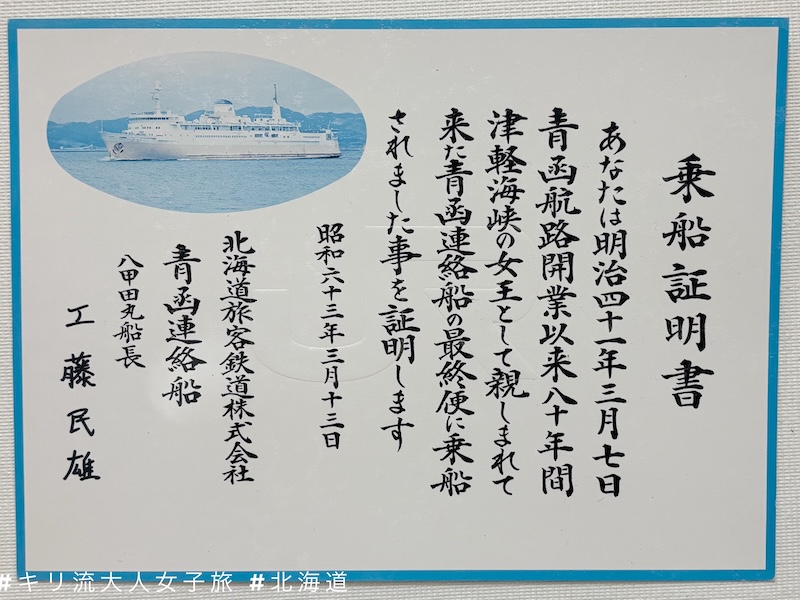 乗船証明書
あなたは明治四十一年三月七日
青函航路開業以来八十年間
津軽海峡の女王として親しまれて
来た青函連絡船の最終便に乗船
されました事を証明します
昭和六十三年三月十三日
北海道旅客鉄道株式会社
青函連絡船
八甲田丸船長
工藤民雄
#キリ流大人女子旅 #北海道